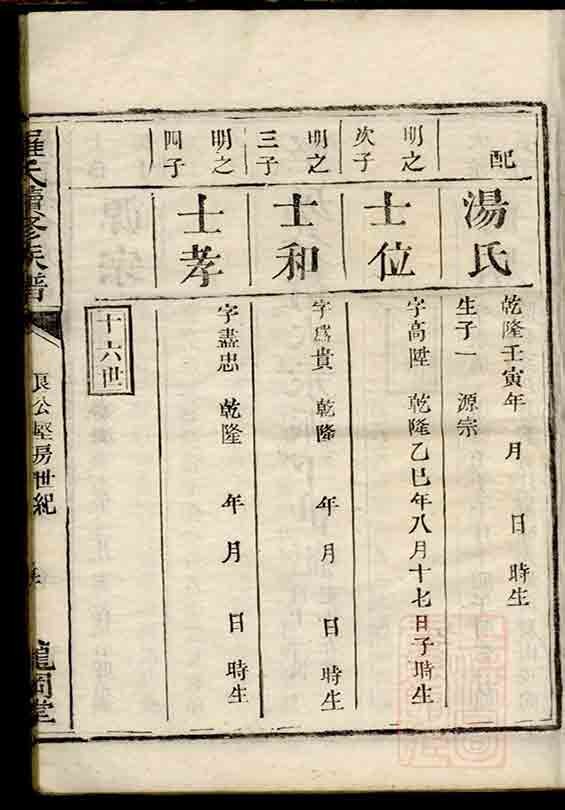 配
湯氏
乾隆壬寅年 月 日 時生
生子一 源宗
明之
次子
士位
字高陞 乾隆乙巳年八月十七日子時生
明之
三子
士和
字爲貴 乾隆 年 月 日 時生
明之
四子
士孝
字盡忠 乾隆 年 月 日 時生
十六世
羅氏續修族譜
良公堅房世紀
龍岡堂